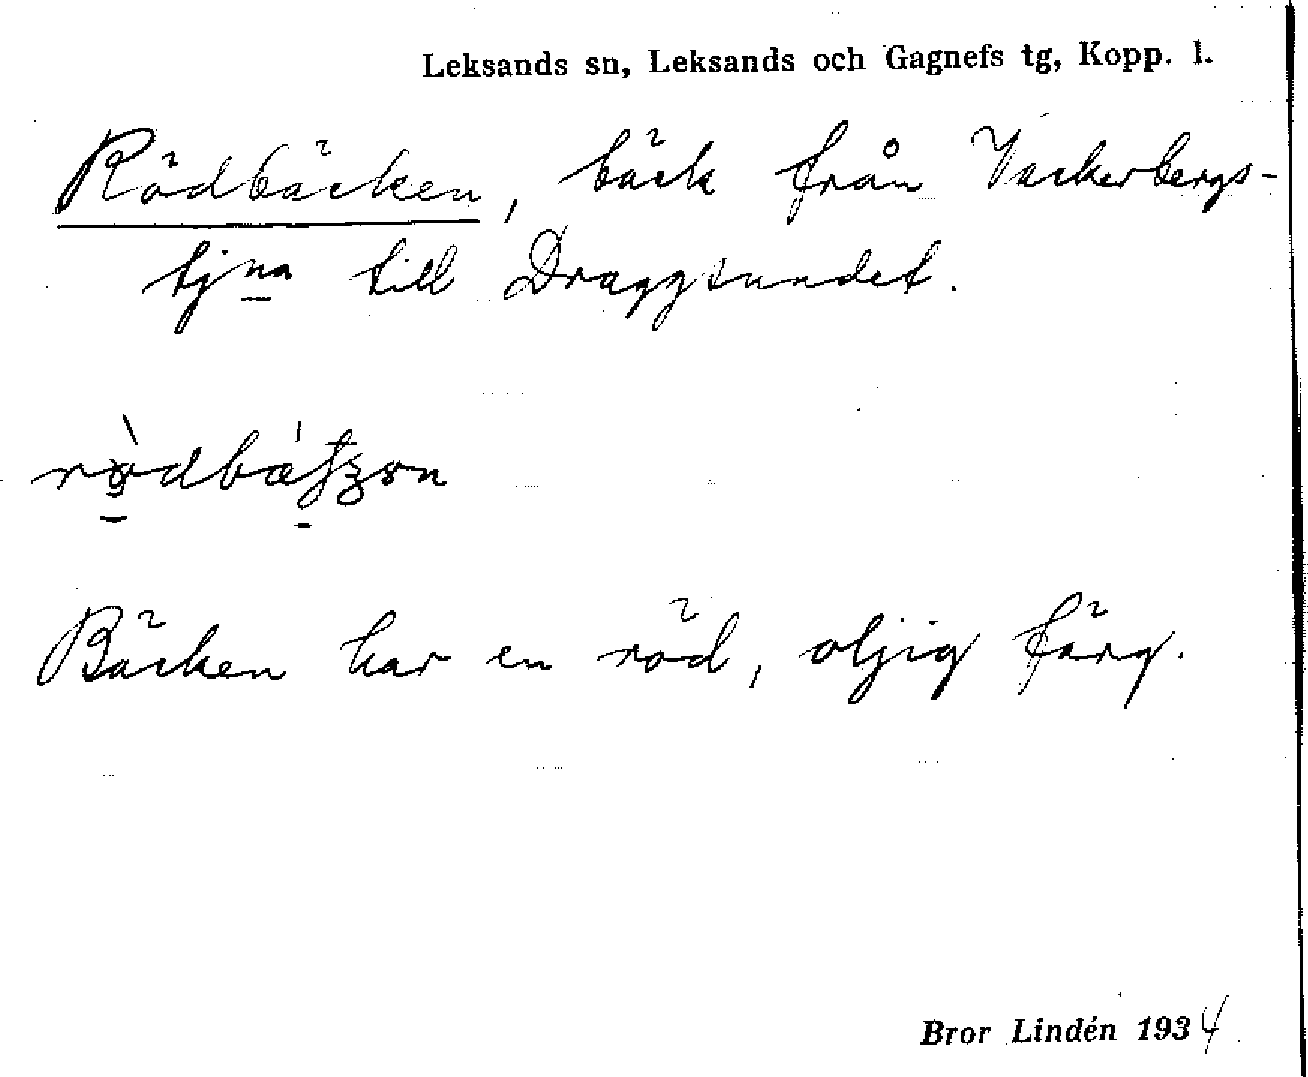 Leksands sn, Leksands och Gagnefs tg, Kopp. l.
Rödbäcken, bäck från Vackerbergs-
tjna till Draggsundet.
Bäcken har en röd, oljig färg.
Bror Lindén 1934